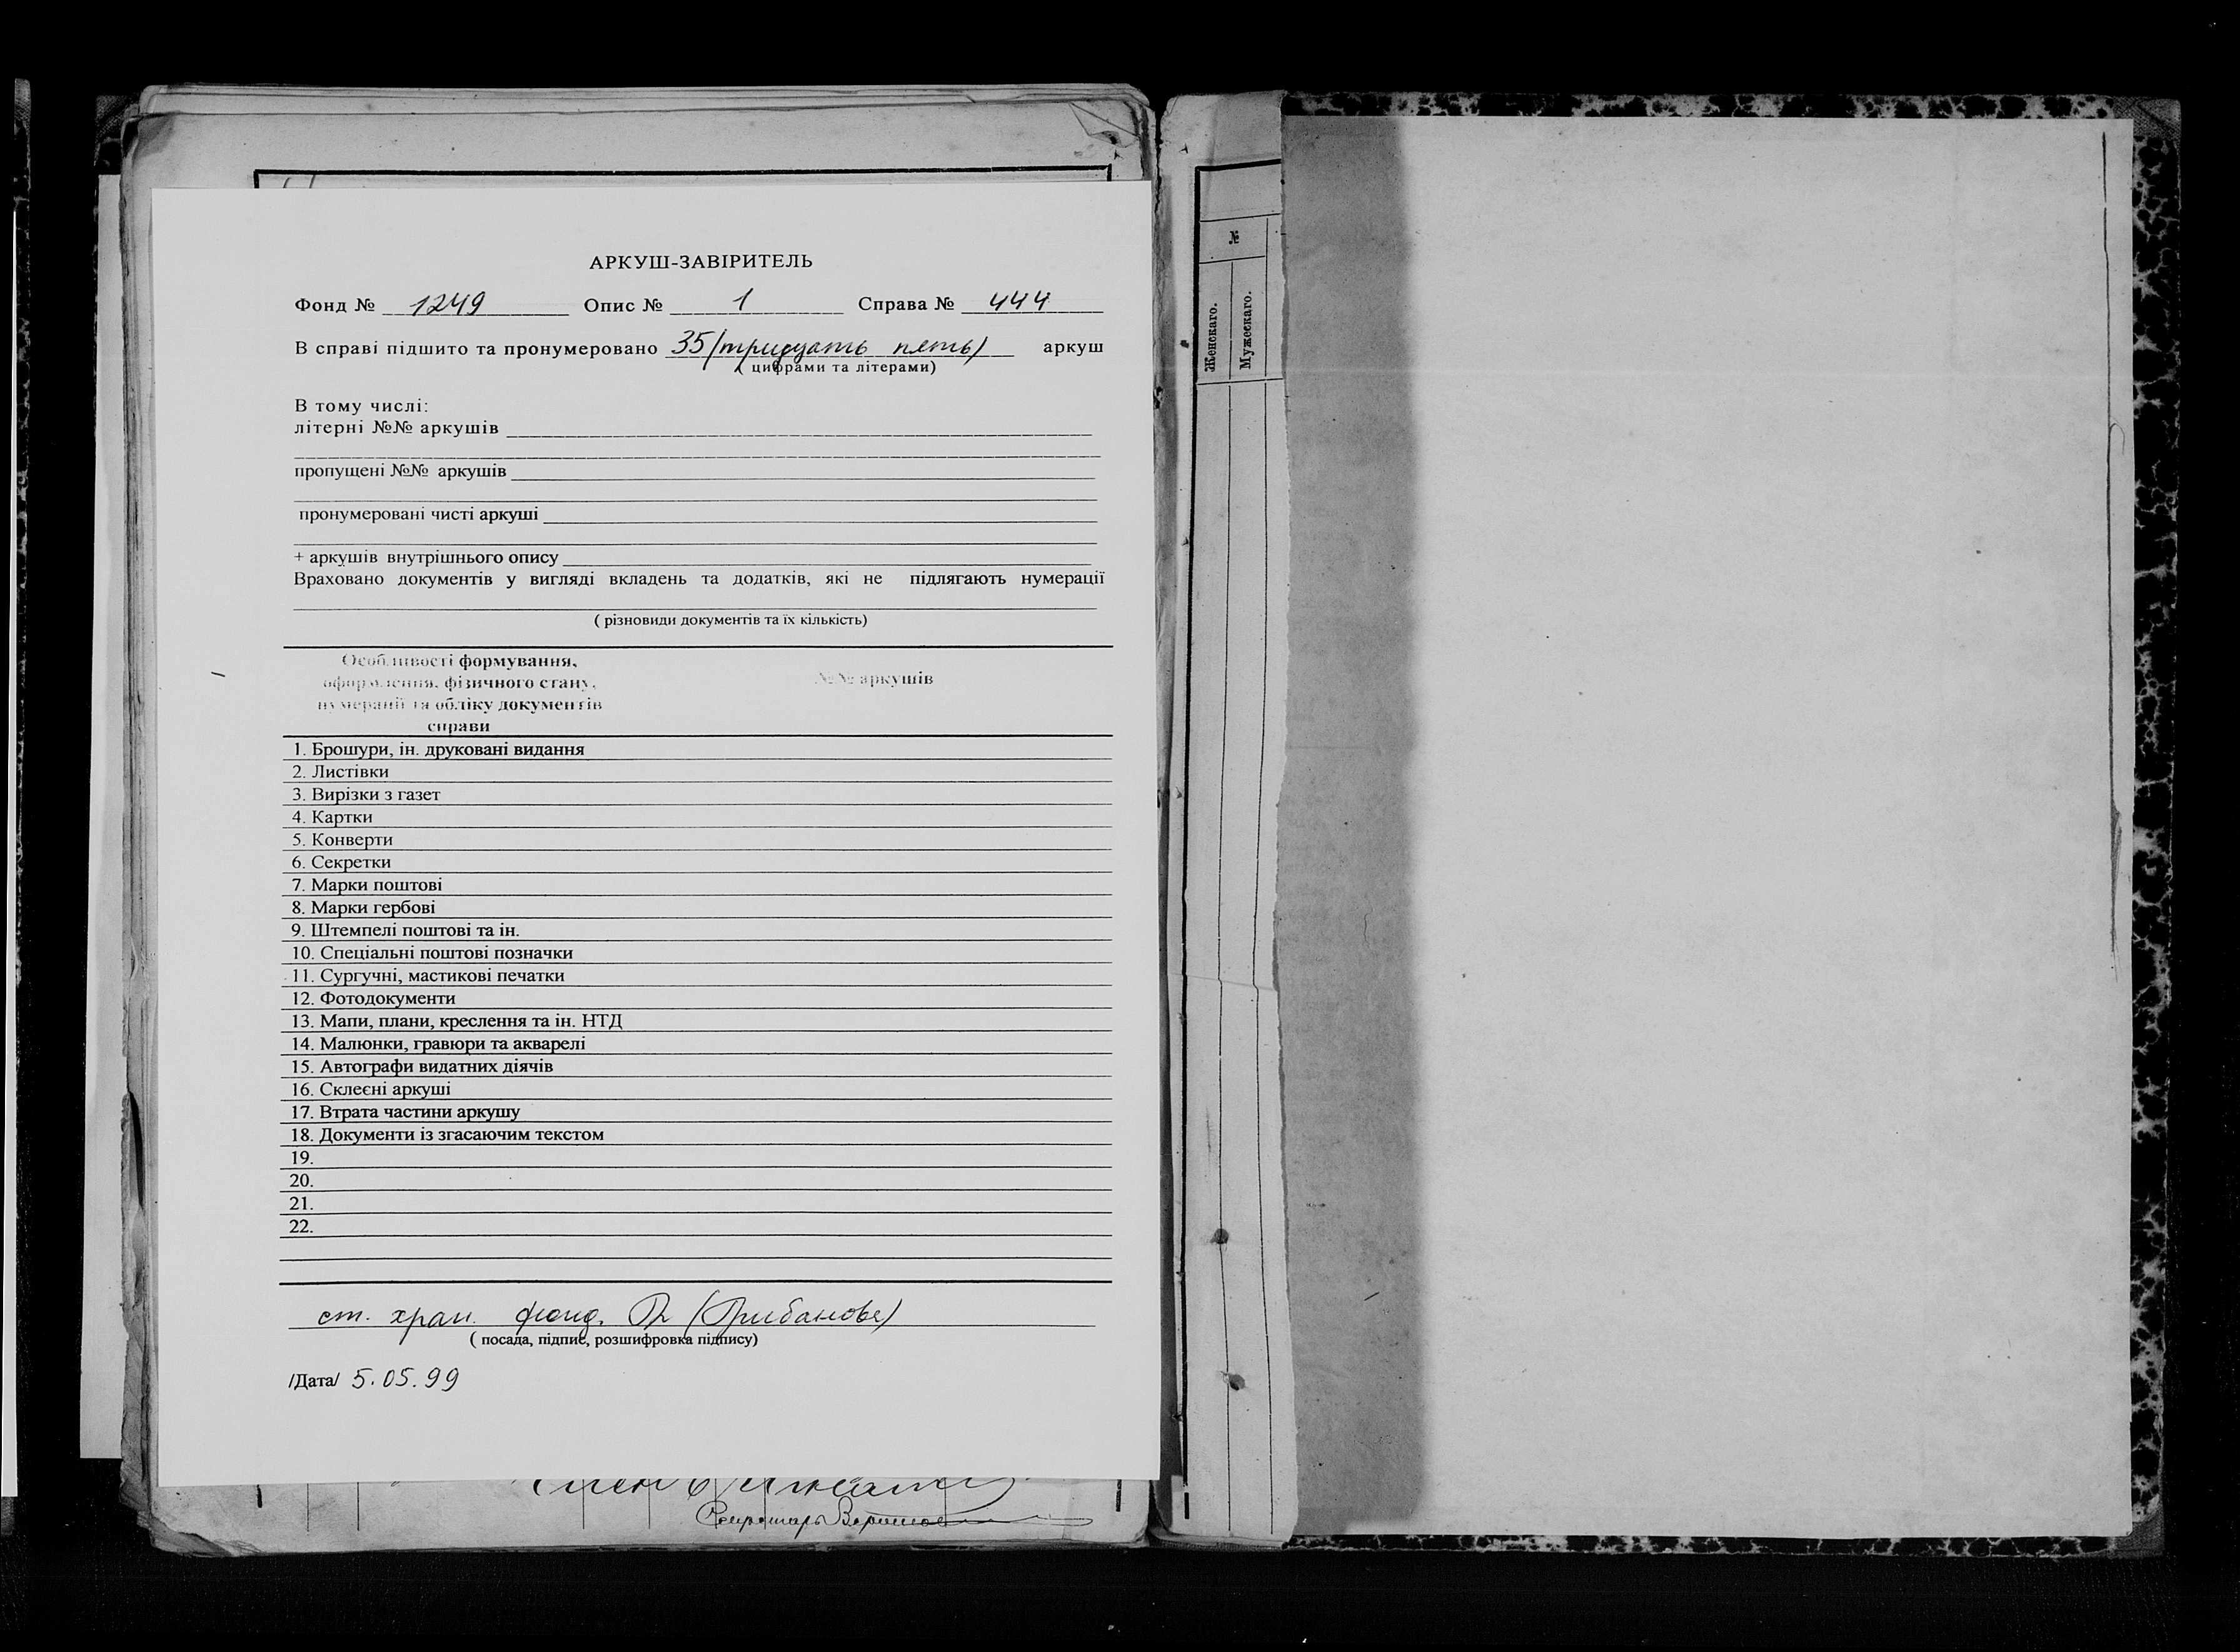 АРКУШ-ЗАВІРИТЕЛЬ
Фонд № 1249 Опис № 1 Справа № 444
В справі підшито та пронумеровано 35 (тридцать пять) аркуш
( цифрами та літерами)
В тому числі:
літерні №№ аркушів
пропущені №№ аркушів
пронумеровані чисті аркуші
+ аркушів внутрішнього опису
Враховано документів у вигляді вкладень та додатків, які не підлягають нумерації
( різновиди документів та їх кількість)
Особливості формування, оформлення, фізичного стану, нумерації та обліку документів справи
№№ аркушів
1. Брошури, ін. друковані видання
2. Листівки
3. Вирізки з газет
4. Картки
5. Конверти
6. Секретки
7. Марки поштові
8. Марки гербові
9. Штемпелі поштові та ін.
10. Спеціальні поштові позначки
11. Сургучні, мастикові печатки
12. Фотодокументи
13. Мапи, плани, креслення та ін. НТД
14. Малюнки, гравюри та акварелі
15. Автографи видатних діячів
16. Склеєні аркуші
17. Втрата частини аркушу
18. Документи із згасаючим текстом
19.
20.
21.
22.
ст. хран. фонд.
( посада, підпис, розшифровка підпису)
/Дата/ 5.05.99
№
Женскаго.
Мужескаго.